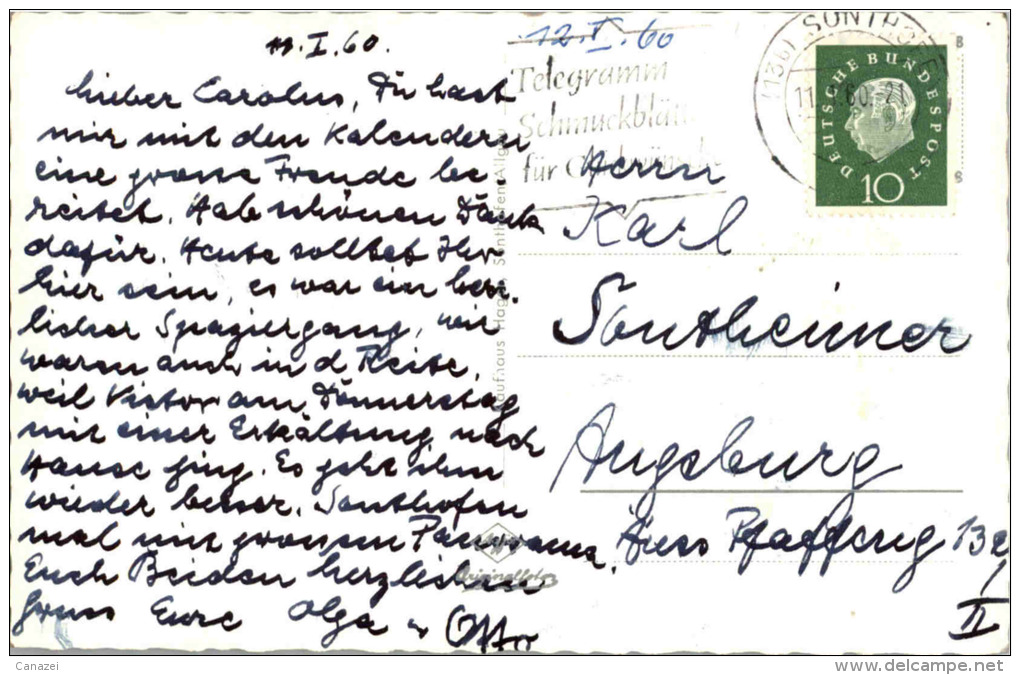 11.I.60.
12.I.60
Lieber Carolus, Du hast
mir mit den Kalendern
eine grosse Freude be
reitet. Hab schönen Dank
dafür. Heute solltet Ihr
hier sein, es war ein herr
licher Spaziergang, wir
waren auch in d
weil Victor am Donnerstag
mit einer Erkältung nach
Hause ging. Es geht ihm
wieder besser. Sonthofen
mal mit grossem Panorama.
Euch Beiden herzlichen
Gruss Eure Olga u Otto
Telegramm
Schmuckblätter
für Glückwünsche
(13b) SONTHOFEN
11. 60. 21
DEUTSCHE BUNDESPOST
10
Herrn
Karl
Sontheimer
Augsburg
Äuss Pfaffeng 13
II
Kaufhaus Hage, Sonthofen/Allgäu
Originalfoto
Canazei
www.delcampe.net